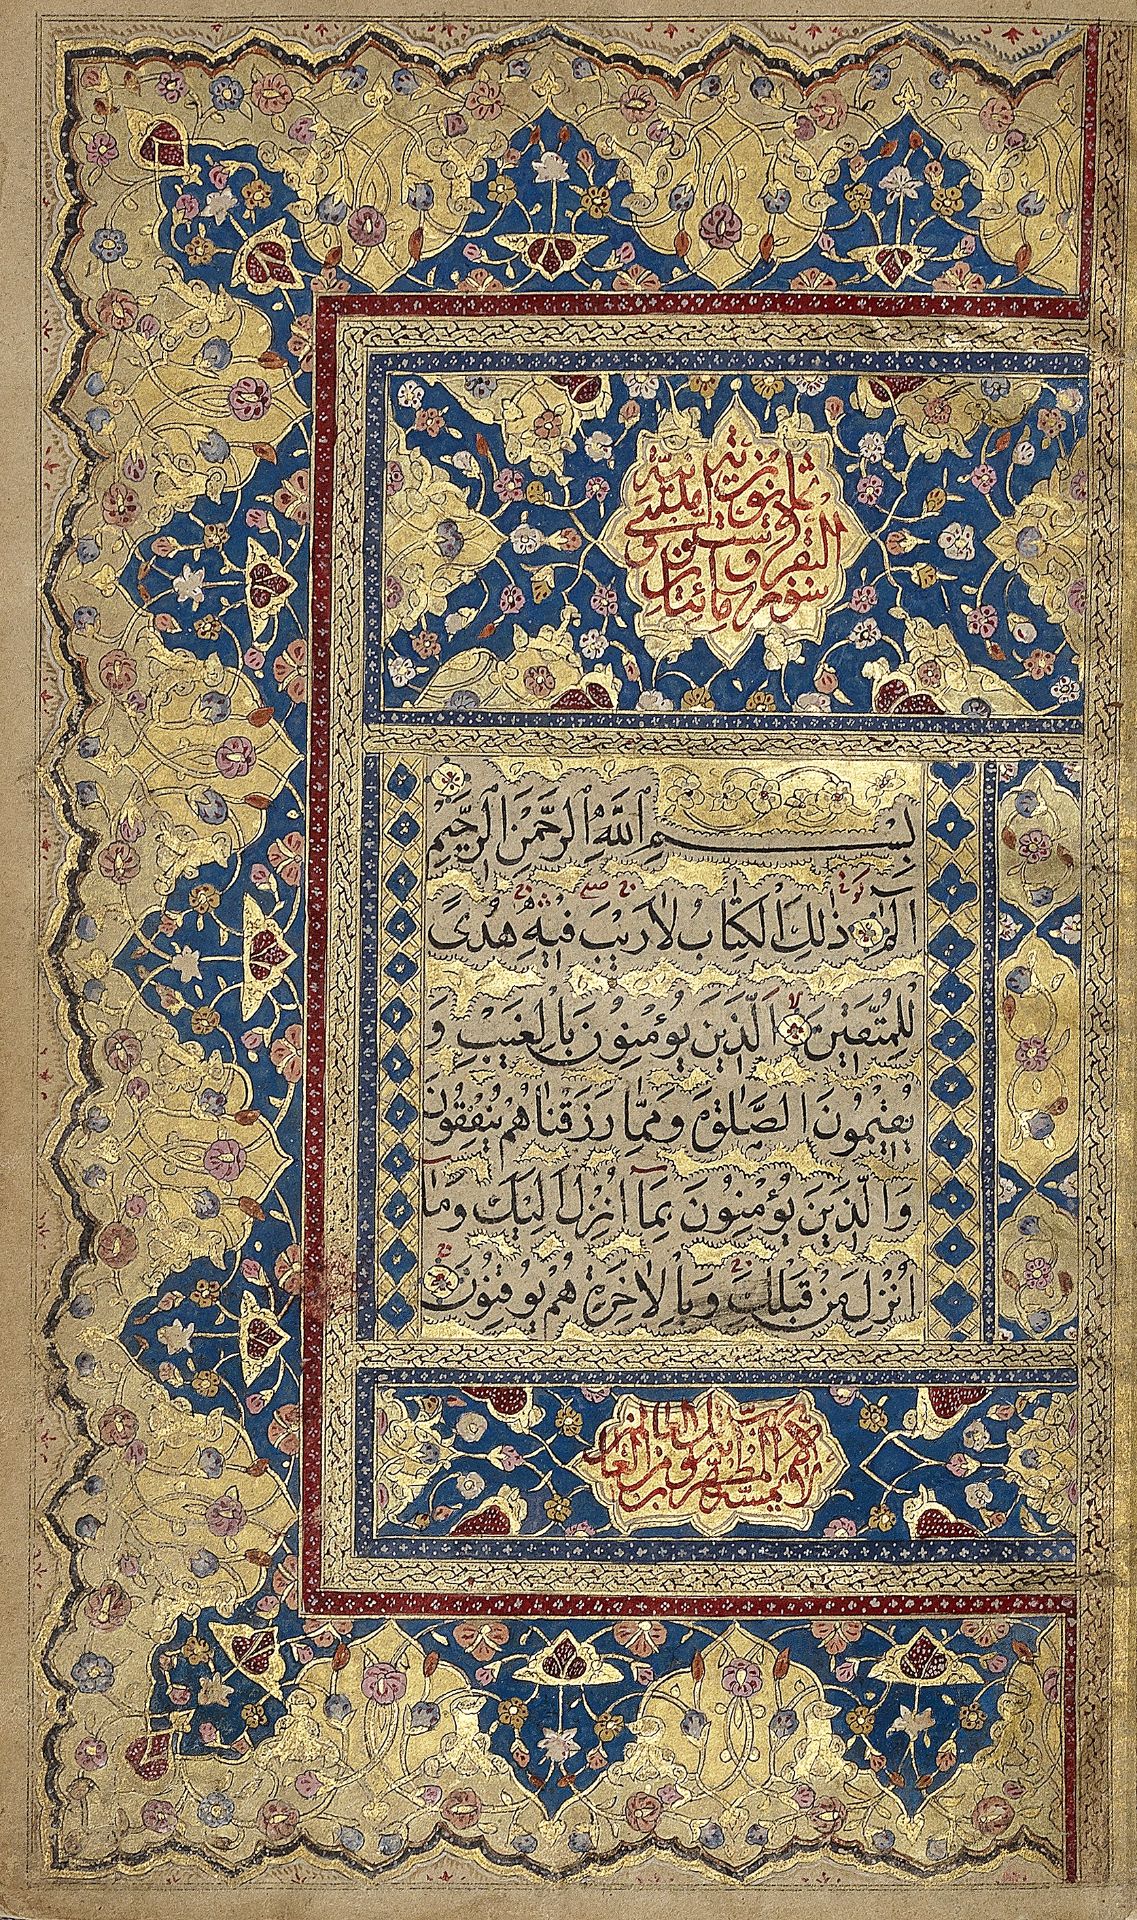 سورة البقرة مائتان و ست و ثمانون آية مدنية
بِسْمِ اللَّهِ الرَّحْمَنِ الرَّحِيمِ
الٓمٓ ذَلِكَ الْكِتَابُ لَا رَيْبَ فِيهِ هُدًى
لِلْمُتَّقِينَ الَّذِينَ يُؤْمِنُونَ بِالْغَيْبِ وَ
يُقِيمُونَ الصَّلٰوةَ وَمِمَّا رَزَقْنَاهُمْ يُنْفِقُونَ
وَالَّذِينَ يُؤْمِنُونَ بِمَآ اُنْزِلَ اِلَيْكَ وَمَآ
اُنْزِلَ مِنْ قَبْلِكَ وَبِالْاٰخِرَةِ هُمْ يُوقِنُونَ
لا يمسه الا المطهرون تنزيل من رب العالمين